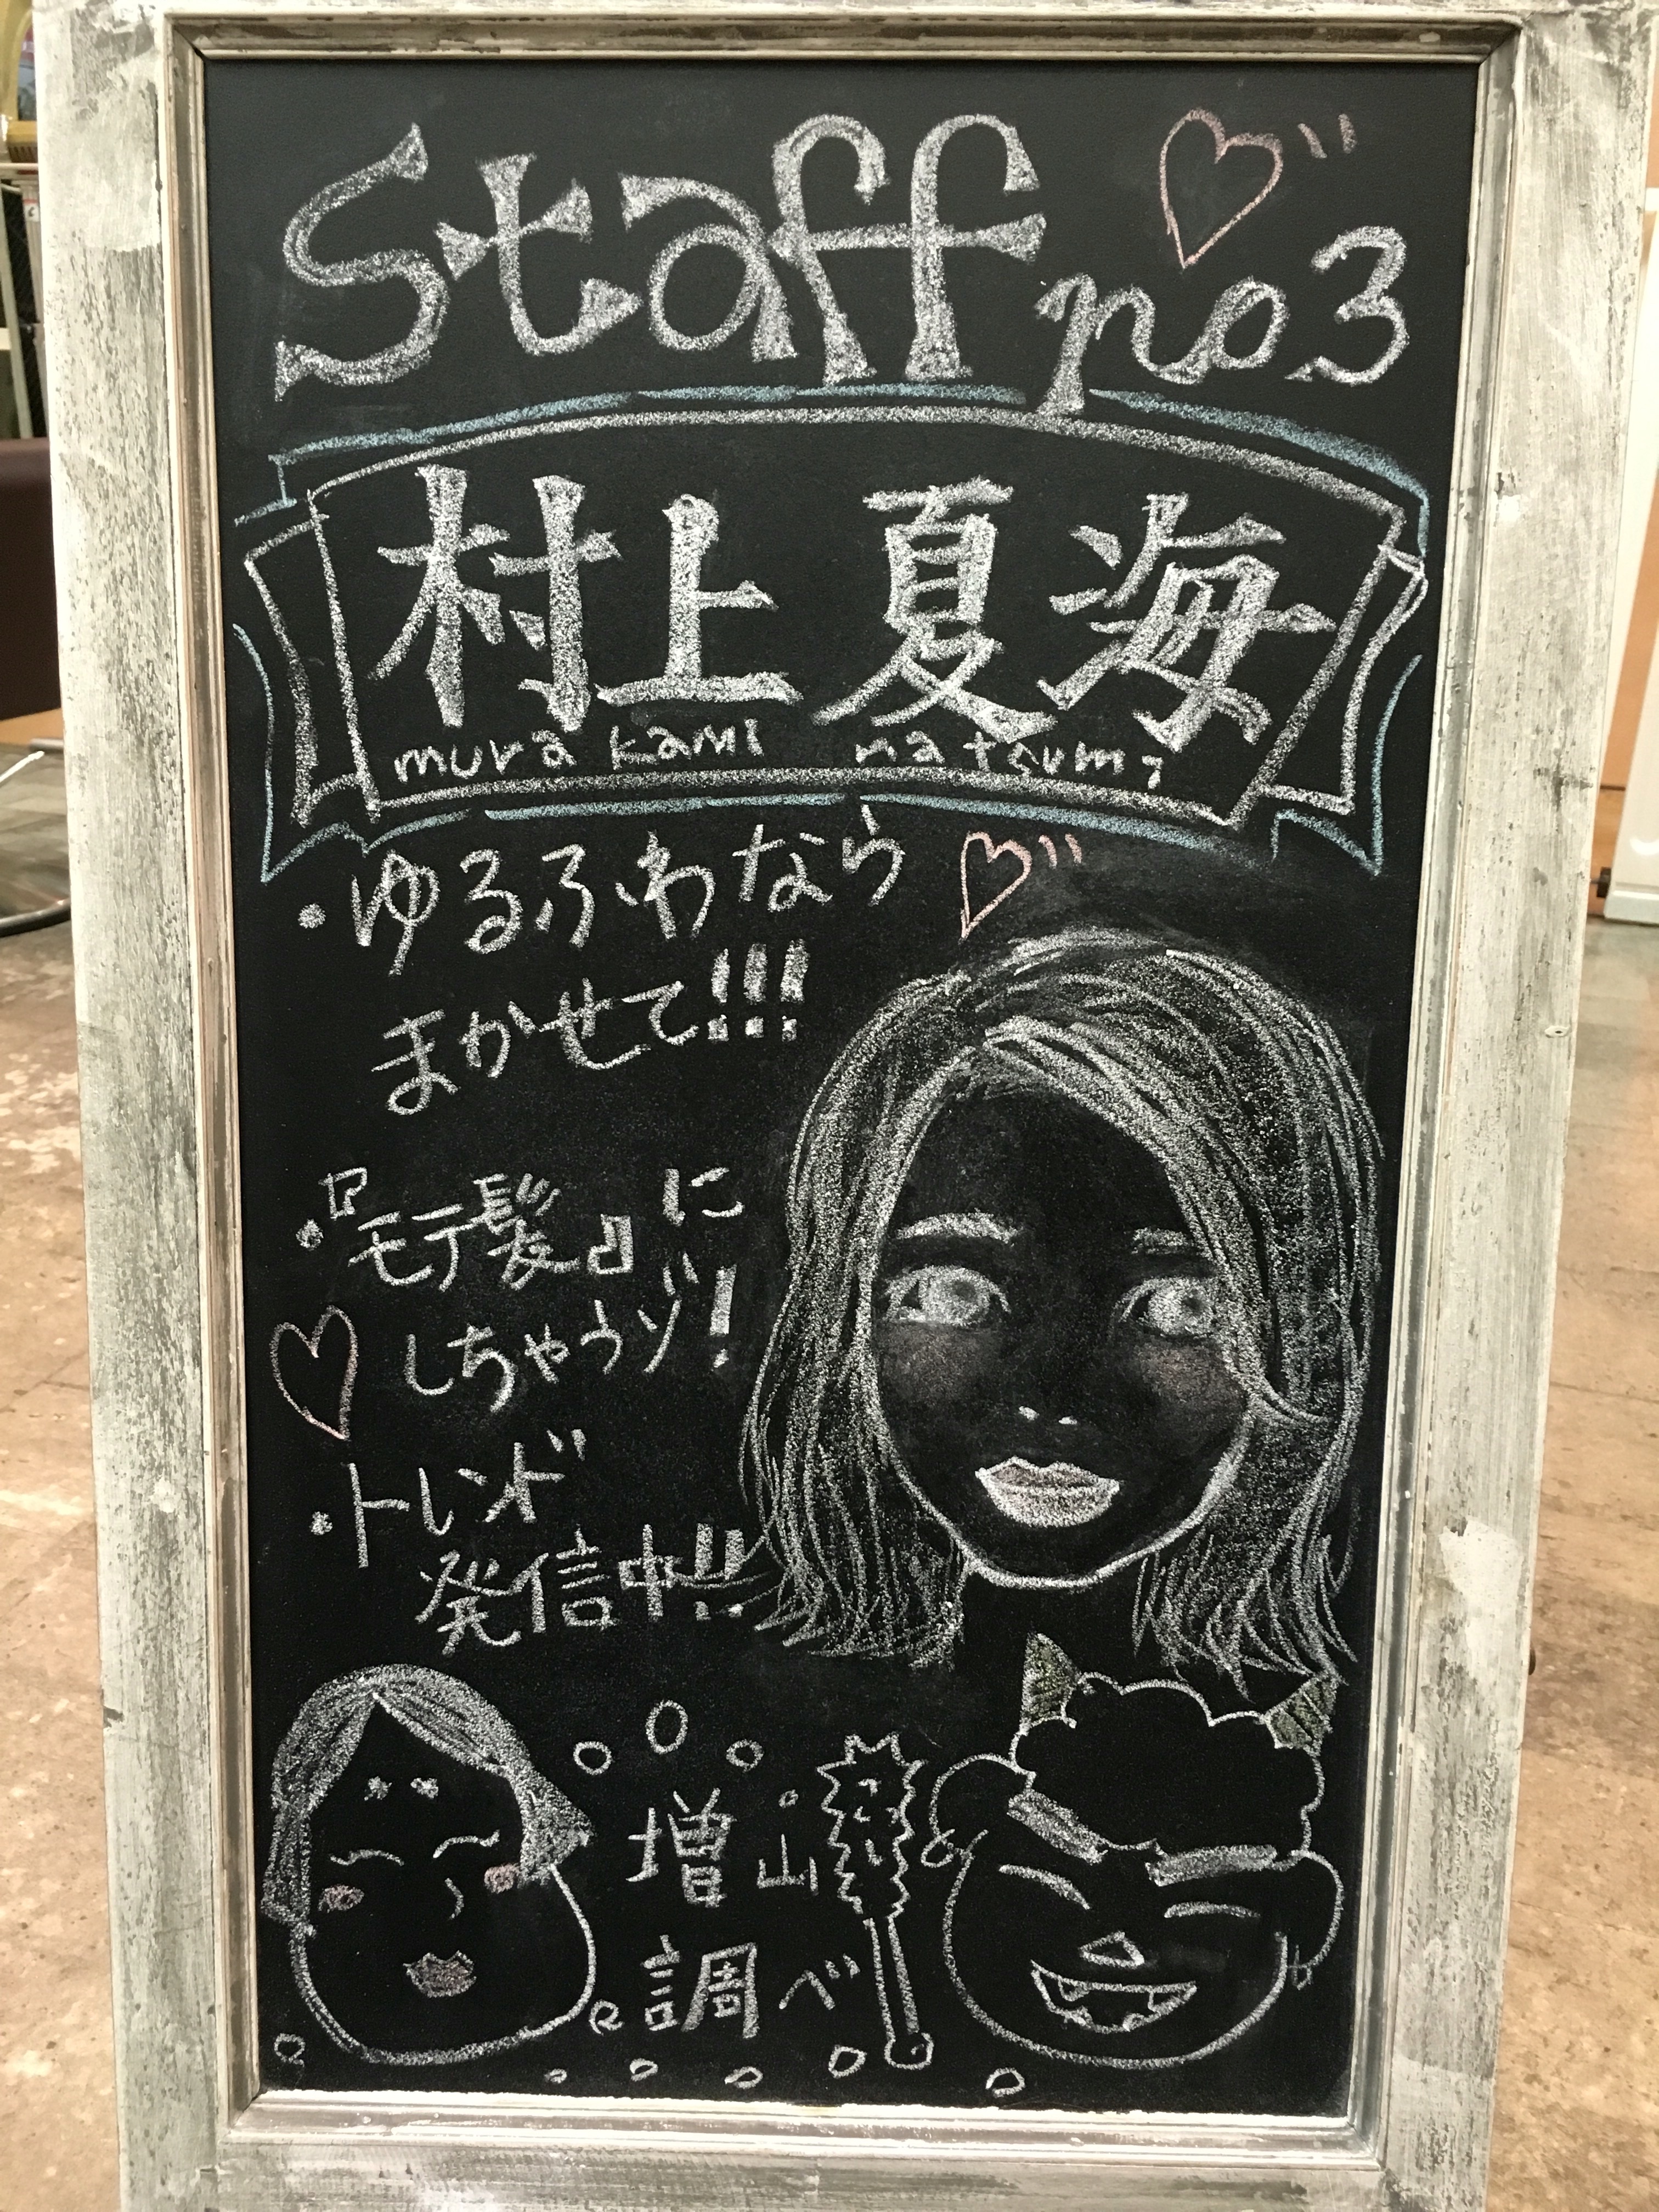 Staff no3
村上 夏海
mura kami natsumi
・ゆるふわなら
まかせて!!!
・『モテ髪』に
しちゃうゾ!
・トレンド
発信中!!
増山
調べ